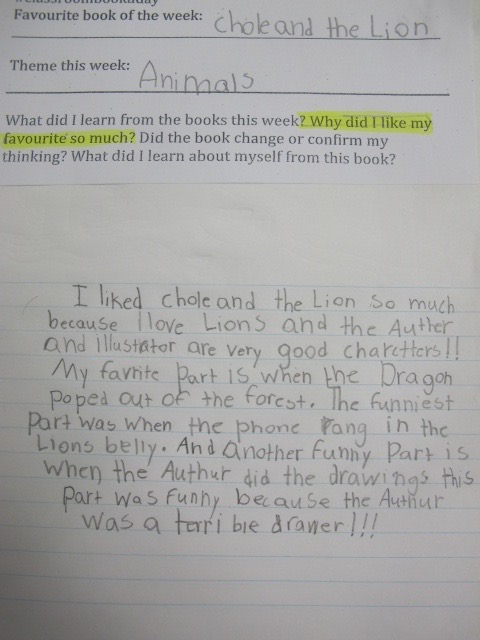 Favourite book of the week: Chole and the Lion
Theme this week: Animals
What did I learn from the books this week? Why did I like my
favourite so much? Did the book change or confirm my
thinking? What did I learn about myself from this book?
I liked chole and the Lion so much
because I love Lions and the Auther
and Illustrator are very good charctters!!
My favrite part is when the Dragon
poped out of the forest. The funniest
Part was when the phone rang in the
Lions belly. And another funny Part is
when the Authur did the drawings this
part was funny because the Authur
was a terrible drawer!!!